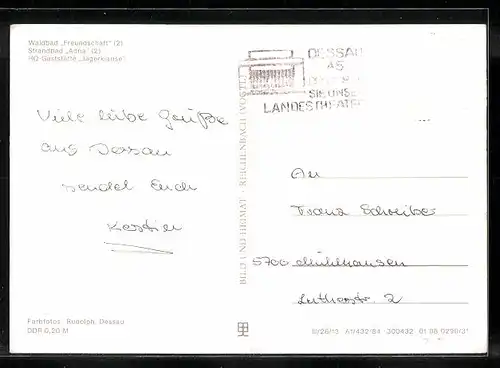 Waldbad „Freundschaft" (2)
Strandbad „Adria" (2)
HO-Gaststätte „Jägerklause"
DESSAU
45
SIE UNSE
LANDESTHEATER
Viele liebe Grüße
aus Dessau
sendet Euch
Kerstin
BILD UND HEIMAT · REICHENBACH (VOGTL)
An
Franz Schreiber
5700 Mühlhausen
Lutherstr. 2
Farbfotos: Rudolph, Dessau
DDR 0,20 M
A1/432/84 300432 01 08 0290/31